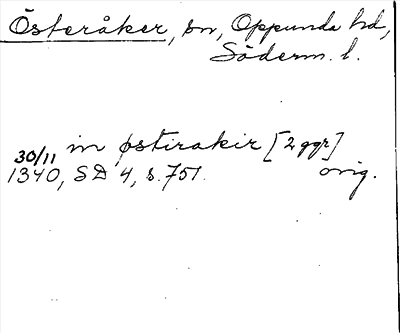 Österåker, sn, Oppunda hd,
Söderm. l.
in østirakir [2 ggr]
30/11
1340, SD 4, s. 751. orig.